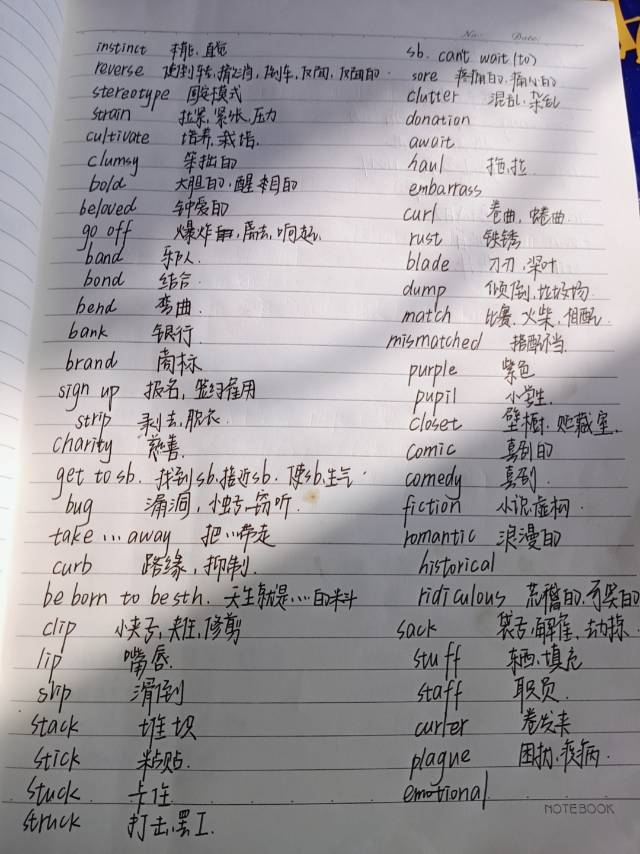 No: Date:
instinct 本能、直觉
reverse 倒车、反面、反面的
stereotype 固定模式
strain 拉紧、紧张、压力
cultivate 培养、栽培
clumsy 笨拙的
bold 大胆的、醒目的
beloved 钟爱的
go off 爆炸、离去、响起
band 乐队
bond 结合
bend 弯曲
bank 银行
brand 商标
sign up 报名,签约雇用
strip 剥去,脱衣
charity 慈善
get to sb. 找到sb,接近sb. 使sb,生气
bug 漏洞,小虫,窃听
take ... away 把...带走
curb 路缘,抑制
be born to be sth. 天生就是...的料
clip 夹住,修剪
lip 嘴唇
slip 滑倒
stack 堆
stick 粘贴
stuck 卡住
struck 打击,罢工
sb. can't wait (to)
sore 疼痛的、痛心的
clutter 混乱、杂乱
donation
await
haul 拖,拉
embarrass
curl 卷曲、蜷曲
rust 铁锈
blade 刀刃、桨叶
dump 倾倒、垃圾场
match 比赛、火柴、相配
mismatched 搭配不当
purple 紫色
pupil 小学生
closet 壁橱、贮藏室
comic 喜剧的
comedy 喜剧
fiction 小说、虚构
romantic 浪漫的
historical
ridiculous 荒谬的、可笑的
sack 解雇、劫掠
stuff 东西、填充
staff 职员
curler 卷发夹
plague 困扰、疾病
emotional
NOTEBOOK